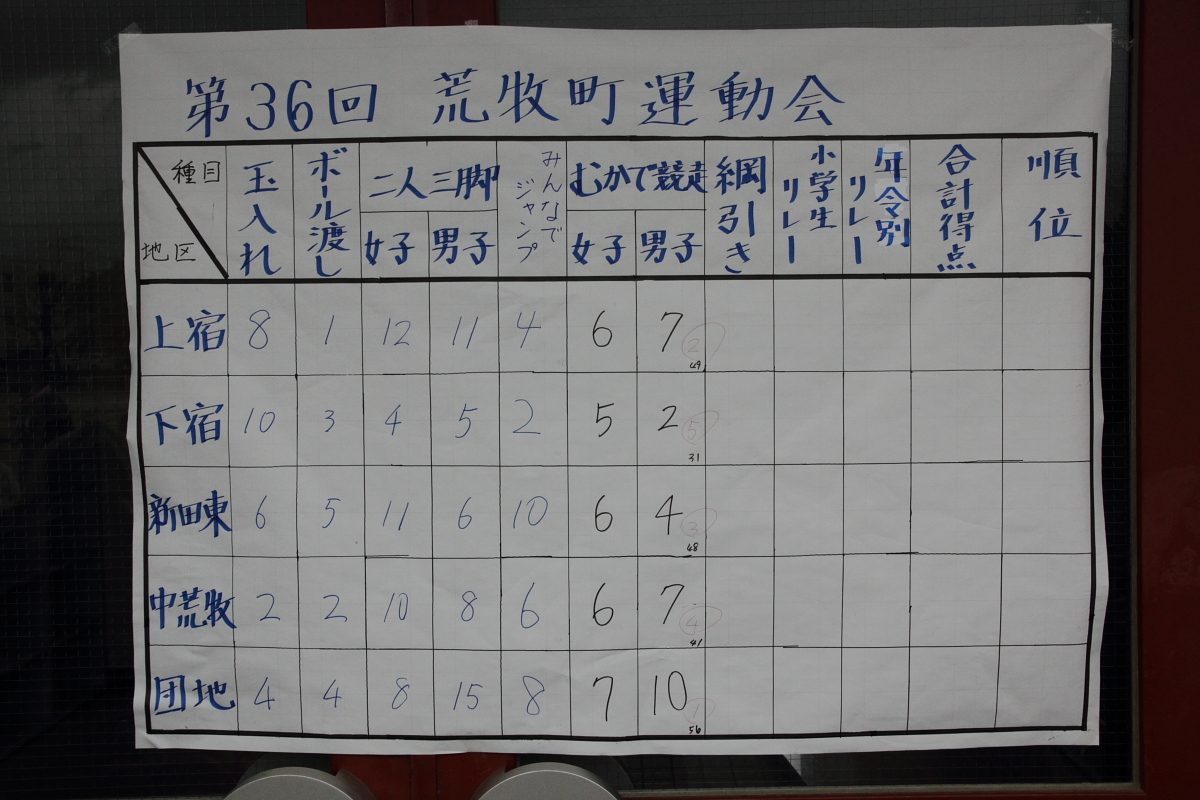 第36回 荒牧町運動会
種目 地区 玉入れ ボール渡し 二人三脚 女子 男子 みんなでジャンプ むかで競走 女子 男子 綱引き 小学生リレー 年令別リレー 合計得点 順位
上宿 8 1 12 11 4 6 7 ② 49
下宿 10 3 4 5 2 5 2 ⑤ 31
新田東 6 5 11 6 10 6 4 ③ 48
中荒牧 2 2 10 8 6 6 7 ④ 41
団地 4 4 8 15 8 7 10 ① 56